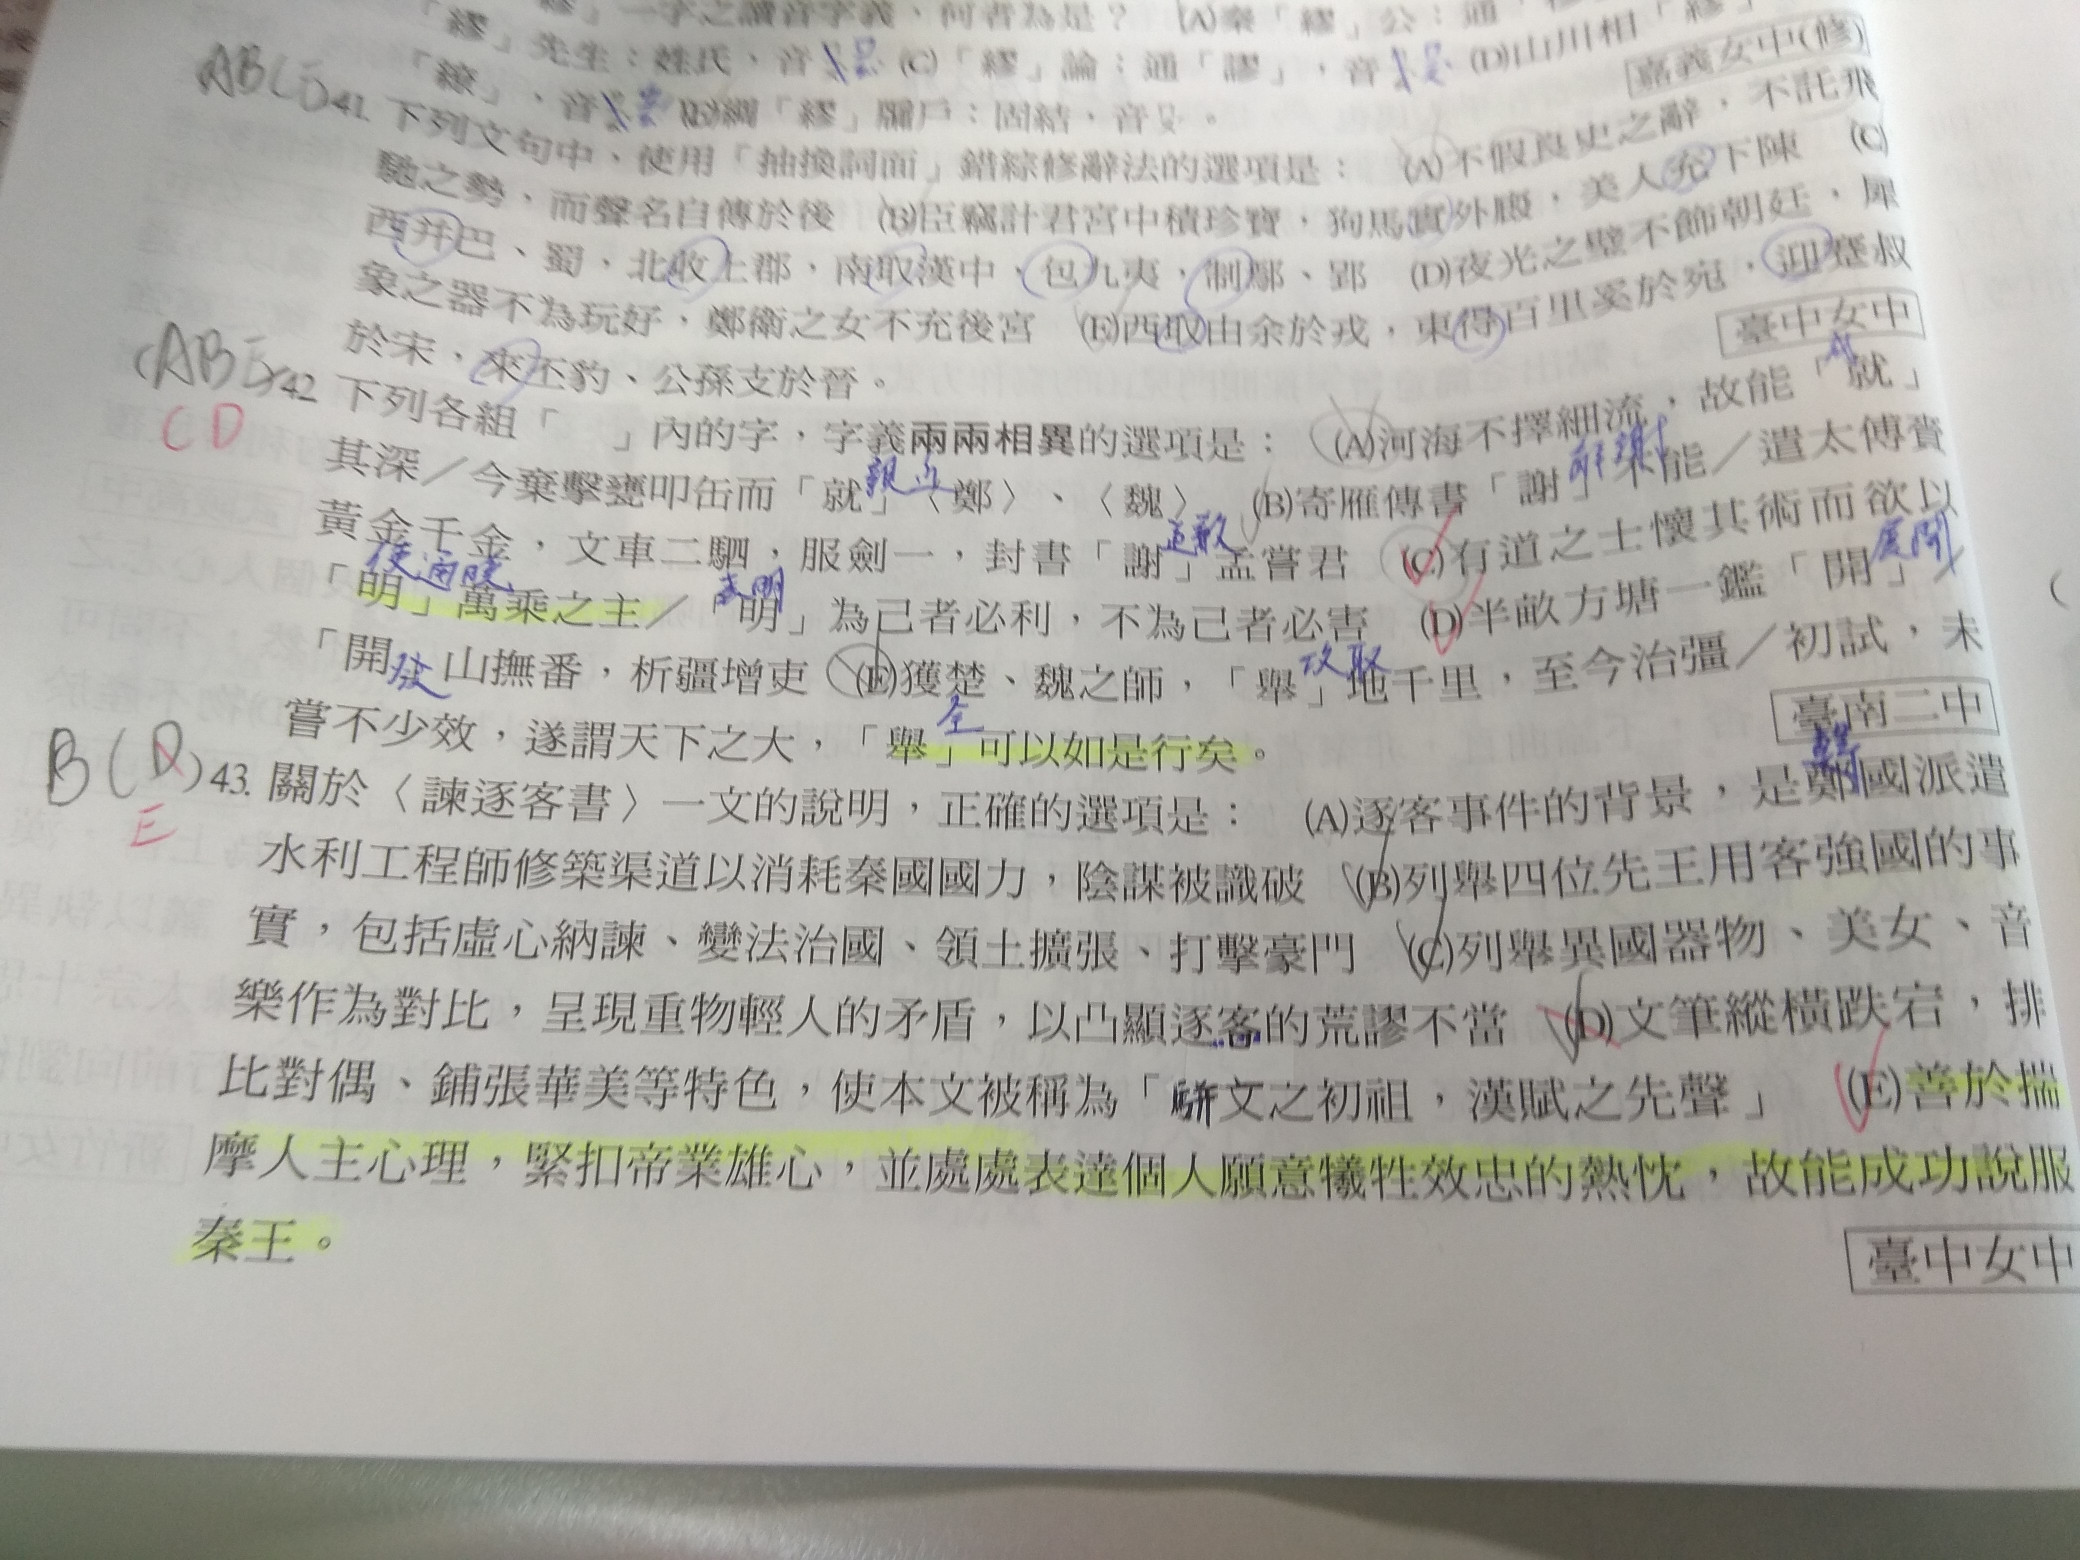 「繆」一字之讀音字義，何者為是？ (A)秦「繆」公：通
「繆」先生：姓氏，音 (C)「繆」論：通「謬」，音 (D)山川相「繆」
「繚」，音 綢「繆」牖戶：固結，音 。
嘉義女中(修)
ABCD 41. 下列文句中，使用「抽換詞面」錯綜修辭法的選項是： (A)不假良史之辭，不託飛
馳之勢，而聲名自傳於後 (B)臣竊計君宮中積珍寶，狗馬實外廄，美人充下陳 (C)
西并巴、蜀，北收上郡，南取漢中，包九夷，制鄢、郢 (D)夜光之璧不飾朝廷，犀
象之器不為玩好，鄭衛之女不充後宮 (E)西取由余於戎，東得百里奚於宛，迎蹇叔
於宋，來丕豹、公孫支於晉。
臺中女中
(ABE) 42. 下列各組「 」內的字，字義兩兩相異的選項是： (A)河海不擇細流，故能「就」
CD
成
其深／今棄擊甕叩缶而「就」〈鄭〉、〈魏〉 (B)寄雁傳書「謝」不能／遣太傅賚
親近
黃金千金，文車二駟，服劍一，封書「謝」孟嘗君 (C)有道之士懷其術而欲以
道歉
「明」萬乘之主／「明」為己者必利，不為己者必害 (D)半畝方塘一鑑「開」／
表明
展開
「開」山撫番，析疆增吏 (E)獲楚、魏之師，「舉」地千里，至今治彊／初試，未
攻取
嘗不少效，遂謂天下之大，「舉」可以如是行矣。
全
臺南二中
B(D) 43. 關於〈諫逐客書〉一文的說明，正確的選項是： (A)逐客事件的背景，是鄭國派遣
E
韓
水利工程師修築渠道以消耗秦國國力，陰謀被識破 (B)列舉四位先王用客強國的事
實，包括虛心納諫、變法治國、領土擴張、打擊豪門 (C)列舉異國器物、美女、音
樂作為對比，呈現重物輕人的矛盾，以凸顯逐客的荒謬不當 (D)文筆縱橫跌宕，排
比對偶、鋪張華美等特色，使本文被稱為「駢文之初祖，漢賦之先聲」 (E)善於揣
摩人主心理，緊扣帝業雄心，並處處表達個人願意犧牲效忠的熱忱，故能成功說服
秦王。
臺中女中